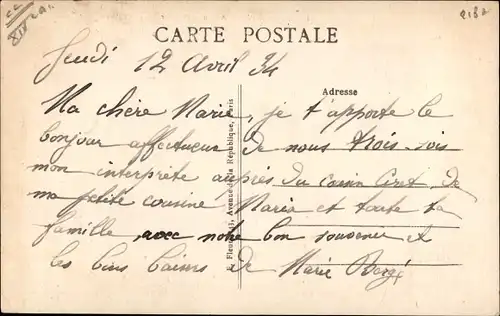 218A
CARTE POSTALE
Jeudi 12 Avril 34
Adresse
Ma chère Marie, je t'apporte le
bonjour affectueux de nous trois. sois
mon interprète auprès du cousin de
ma petite cousine Maria et toute ta
famille, avec notre bon souvenir et
les bons baisers de Marie
Avenue de la République, Paris